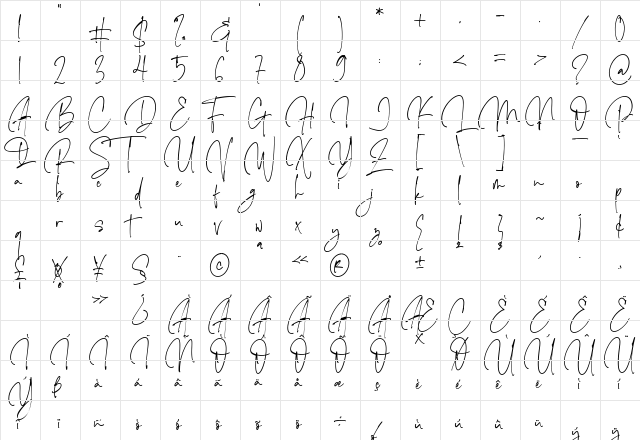 ! " # $ % & ' ( ) * + , - . / 0
1 2 3 4 5 6 7 8 9 : ; < = > ? @
A B C D E F G H I J K L M N O P
Q R S T U V W X Y Z [ \ ] _
a b c d e f g h i j k l m n o p
q r s t u v w x y z { | } ~ ¡ ¢
£ ¤ ¥ § ¨ © ª « ® ¯ ± ² ³ ´ · ¸
¹ º » ¿ À Á Â Ã Ä Å Æ Ç È É Ê Ë
Ì Í Î Ï Ñ Ò Ó Ô Õ Ö × Ø Ù Ú Û Ü
Ý ß à á â ã ä å æ ç è é ê ë ì í
î ï ñ ò ó ô õ ö ÷ ø ù ú û ü ý ÿ